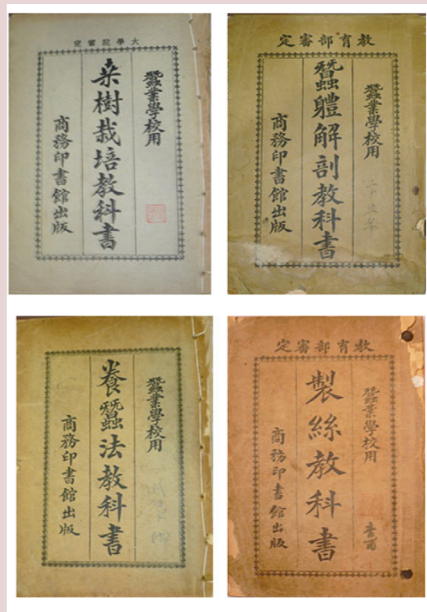 大學院審定
蠶業學校用
桒樹栽培教科書
商務印書館出版
教育部審定
蠶業學校用
蠶體解剖教科書
商務印書館出版
蠶業學校用
養蠶法教科書
商務印書館出版
教育部審定
蠶業學校用
製絲教科書
商務印書館出版